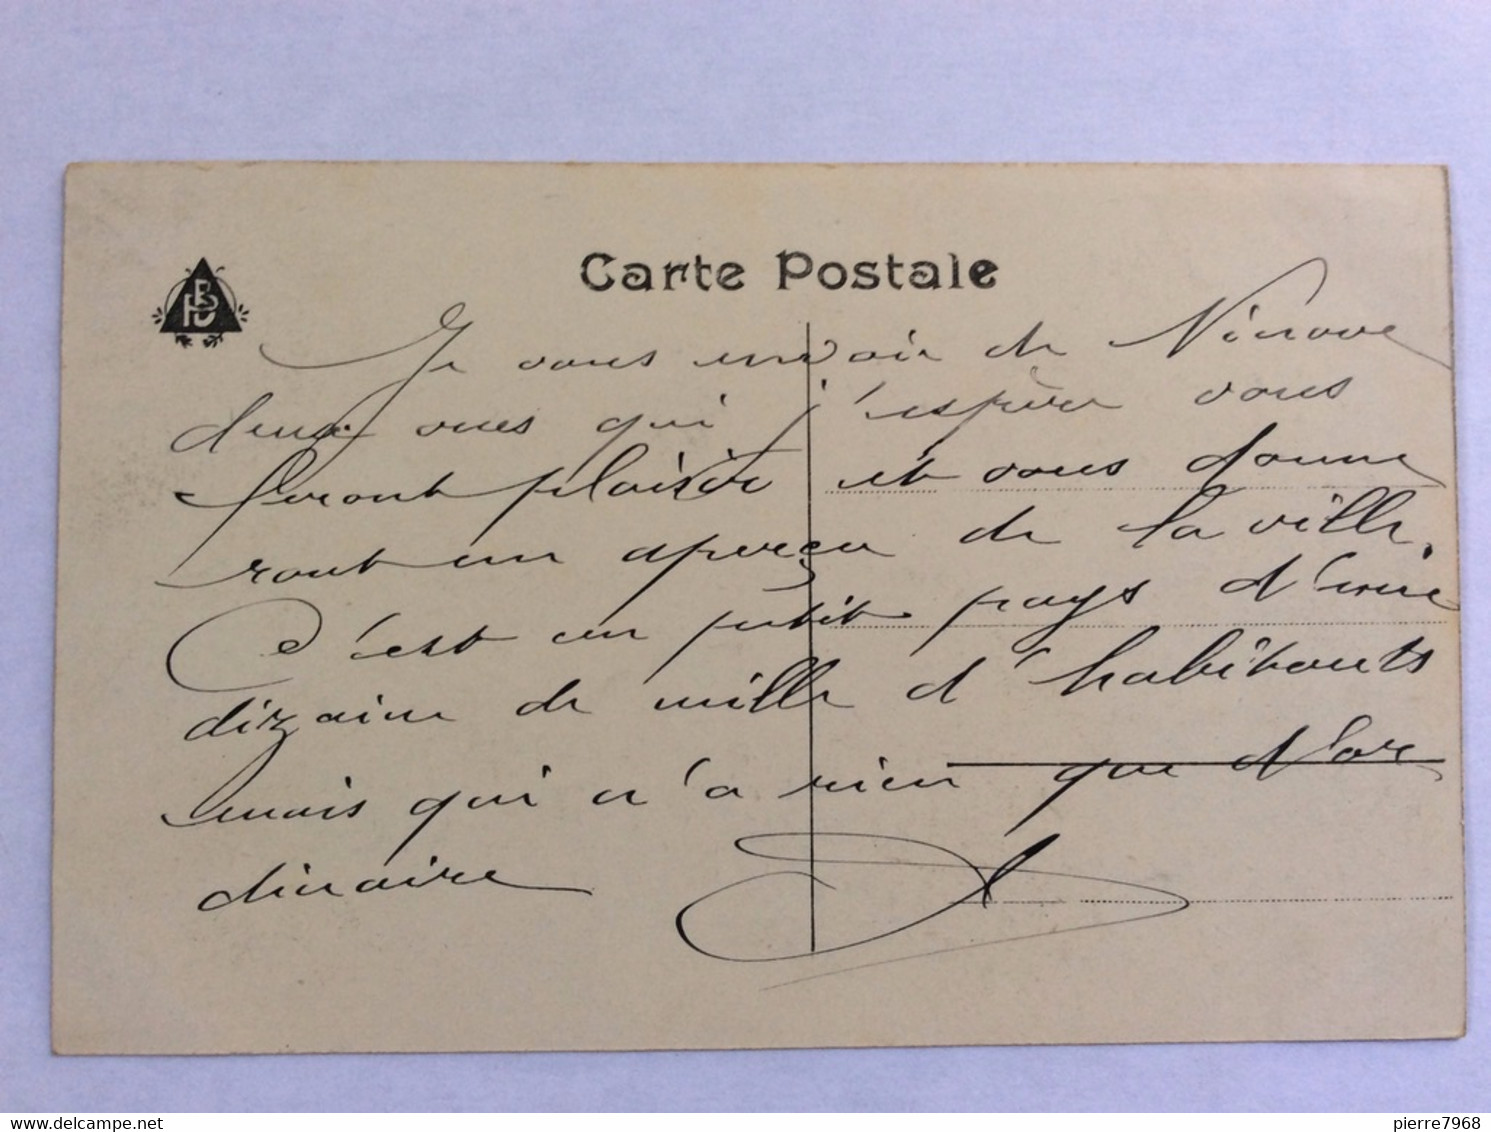 Carte Postale
Je vous envoie de Ninove
deux vues qui j'espère vous
feront plaisir et vous donne
ront un aperçu de la ville.
C'est un petit pays d'une
dizaine de mille d'habitants
mais qui n'a rien que d'or
dinaire
pierre7968